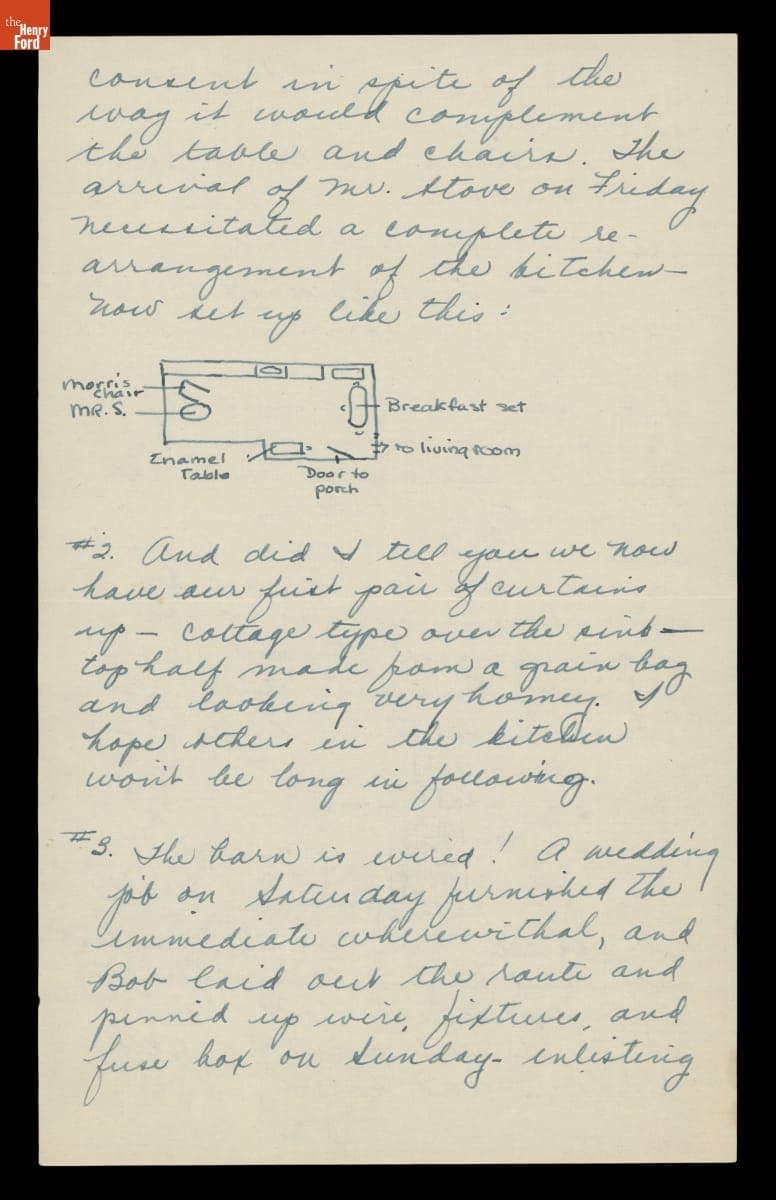 the Henry Ford
consent in spite of the
way it would complement
the table and chairs. The
arrival of Mr. Stove on Friday
necessitated a complete re-
arrangement of the kitchen—
now set up like this:
Morris chair
MR. S.
Breakfast set
to living room
Enamel Table
Door to porch
#2. And did I tell you we now
have our first pair of curtains
up — cottage type over the sink —
top half made from a grain bag
and looking very homey. I
hope others in the kitchen
won't be long in following.
#3. The barn is wired! A wedding
job on Saturday furnished the
immediate wherewithal, and
Bob laid out the route and
pinned up wire, fixtures, and
fuse box on Sunday - enlisting